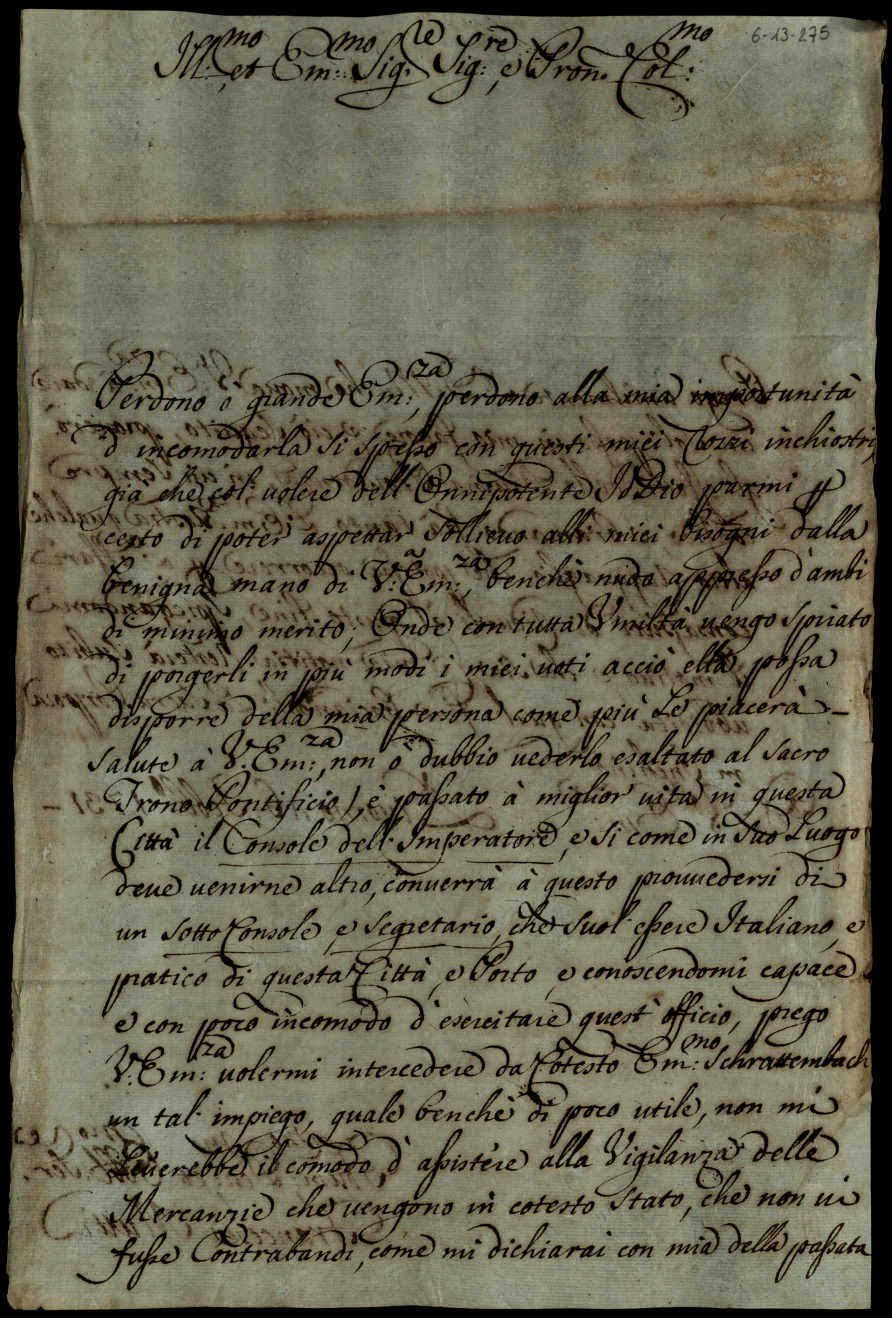 6-13-275
Ill:mo et Em:mo Sig:re Sig:re, e Pron. Col:mo
Perdono ò grande Em:za, perdono alla mia importunità
d'incomodarla si spesso con questi miei rozzi inchiostri,
già che col' volere dell' Onnipotente Iddio parmi p
certo di poter' aspettar' sollievo alli miei bisogni dalla
benigna mano di V.ã Em:za, benchè nudo appresso d'ambi
di minimo merito; Onde con tutta Vmiltà vengo spirato
di porgerli in più modi i miei voti acciò ella possa
disporre della mia persona come più Le piacerà -
salute à V. Em:za, non ò dubbio vederlo esaltato al sacro
Trono Pontificio), è passato à miglior' vita in questa
Città il Console dell' Imperatore, e si come in suo Luogo
deve venirne altro, converrà à questo provvedersi di
un sotto Console, e segretario, che suol' essere Italiano, e
pratico di questa Città, e Porto, e conoscendomi capace
e con poco incomodo d'esercitare quest' officio, prego
V. Em:za volermi intercedere da Cotesto Em:mo Schrattembach
un tal' impiego, quale benchè di poco utile, non mi
leverebbe il comodo d'assistere alla Vigilanza delle
Mercanzie che vengono in cotesto stato, che non vi
fusse Contrabandi, come mi dichiarai con mia della passata